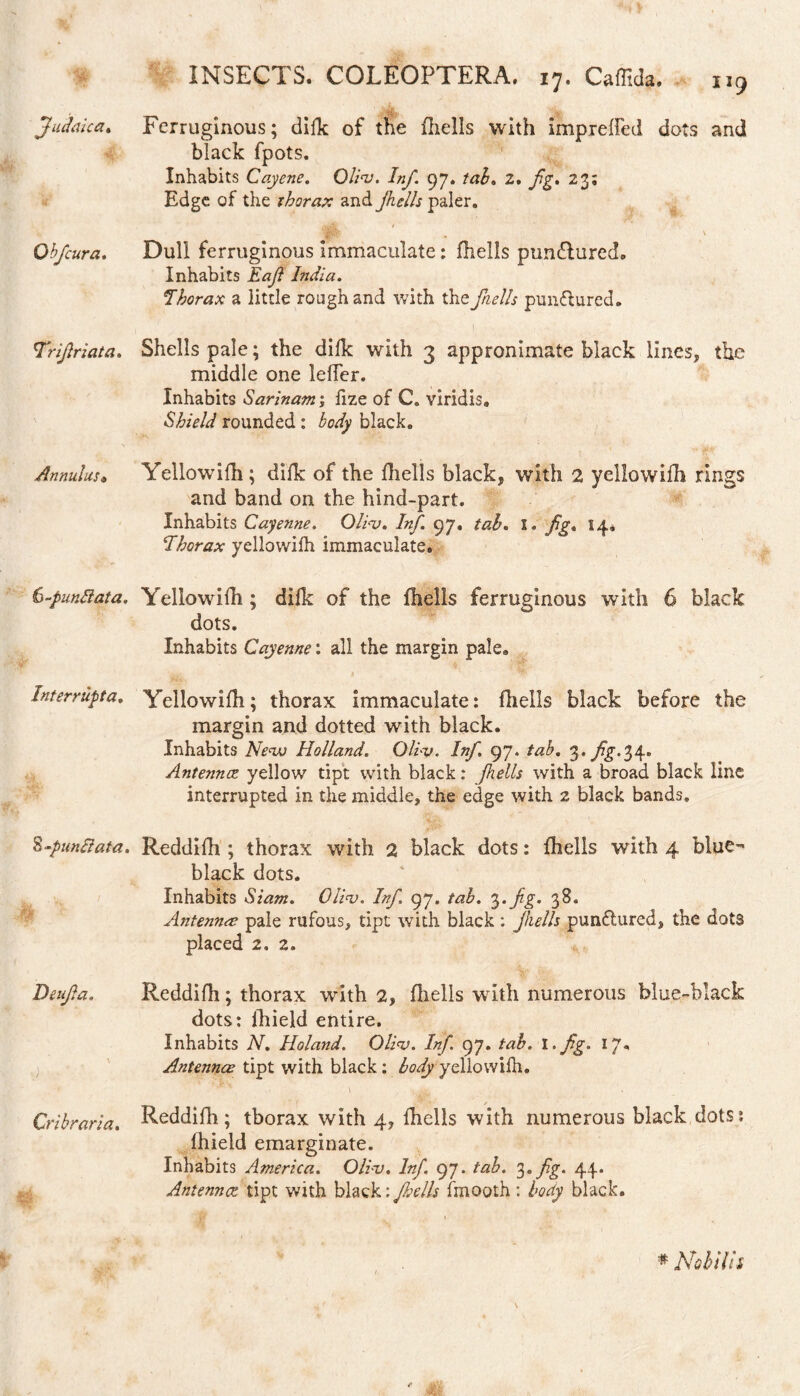 INSECTS. COLEOPTERA. 17. Caſſida. 119
Judaica. Ferruginous; diſk of the ſhells with impreſſed dots and
black ſpots.
Inhabits Cayene. Oliv. Inſ. 97. tab. 2. fig. 23;
Edge of the thorax and ſhells paler.
Obſcura. Dull ferruginous immaculate: ſhells punctured.
Inhabits Eaſt India.
Thorax a little rough and with the ſhells punctured.
Triſtriata. Shells pale; the diſk with 3 appronimate black lines, the
middle one leſſer.
Inhabits Sarinam; ſize of C. viridis.
Shield rounded: body black.
Annulus. Yellowiſh; diſk of the ſhells black, with 2 yellowiſh rings
and band on the hind-part.
Inhabits Cayenne. Oliv. Inſ. 97. tab. 1. fig. 14.
Thorax yellowiſh immaculate.
6-punctata. Yellowiſh; diſk of the ſhells ferruginous with 6 black
dots.
Inhabits Cayenne: all the margin pale.
Interrupta. Yellowiſh; thorax immaculate: ſhells black before the
margin and dotted with black.
Inhabits New Holland. Oliv. Inſ. 97. tab. 3. fig. 34.
Antennæ yellow tipt with black: ſhells with a broad black line
interrupted in the middle, the edge with 2 black bands.
8-punctata. Reddiſh; thorax with 2 black dots: ſhells with 4 blue-
black dots.
Inhabits Siam. Oliv. Inſ. 97. tab. 3. fig. 38.
Antennæ pale rufous, tipt with black: ſhells punctured, the dots
placed 2. 2.
Deuſta. Reddiſh; thorax with 2, ſhells with numerous blue-black
dots: ſhield entire.
Inhabits N. Holand. Oliv. Inſ. 97. tab. 1. fig. 17.
Antennæ tipt with black: body yellowiſh.
Cribraria. Reddiſh; tborax with 4, ſhells with numerous black dots:
ſhield emarginate.
Inhabits America. Oliv. Inſ. 97. tab. 3. fig. 44.
Antennæ tipt with black: ſhells ſmooth: body black.
* Nobilis